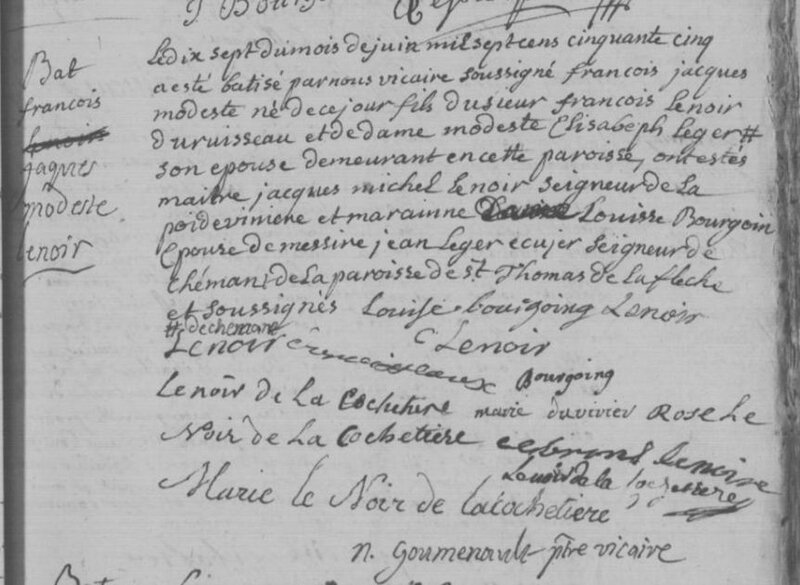 Bat
françois
lenoir
jaques
modeste
lenoir
Le dix sept du mois de juin mil sept cens cinquante cinq
a esté batisé par nous vicaire soussigné françois jacques
modeste né de ce jour fils du sieur françois Lenoir
duruisseau et de dame modeste Elisabeph Leger #
son epouse demeurant en cette paroisse, ont estés
maitre jacques michel Lenoir seigneur de La
poideviniere et marainne Louisse Bourgoin
Epouse de messire jean Leger ecujer seigneur de
Chéman, de La paroisse de st. Thomas de La fleche
et soussignés Louise bourgoing Lenoir
# de cheman
Lenoir C Lenoir
Bourgoing
Lenoir de La Cochetiere marie duvivier Rose Le
Noir de La Cochetiere Lenoir
Lenoir de la
Marie le Noir de lacochetiere
n. Goumenault ptre vicaire
Bat